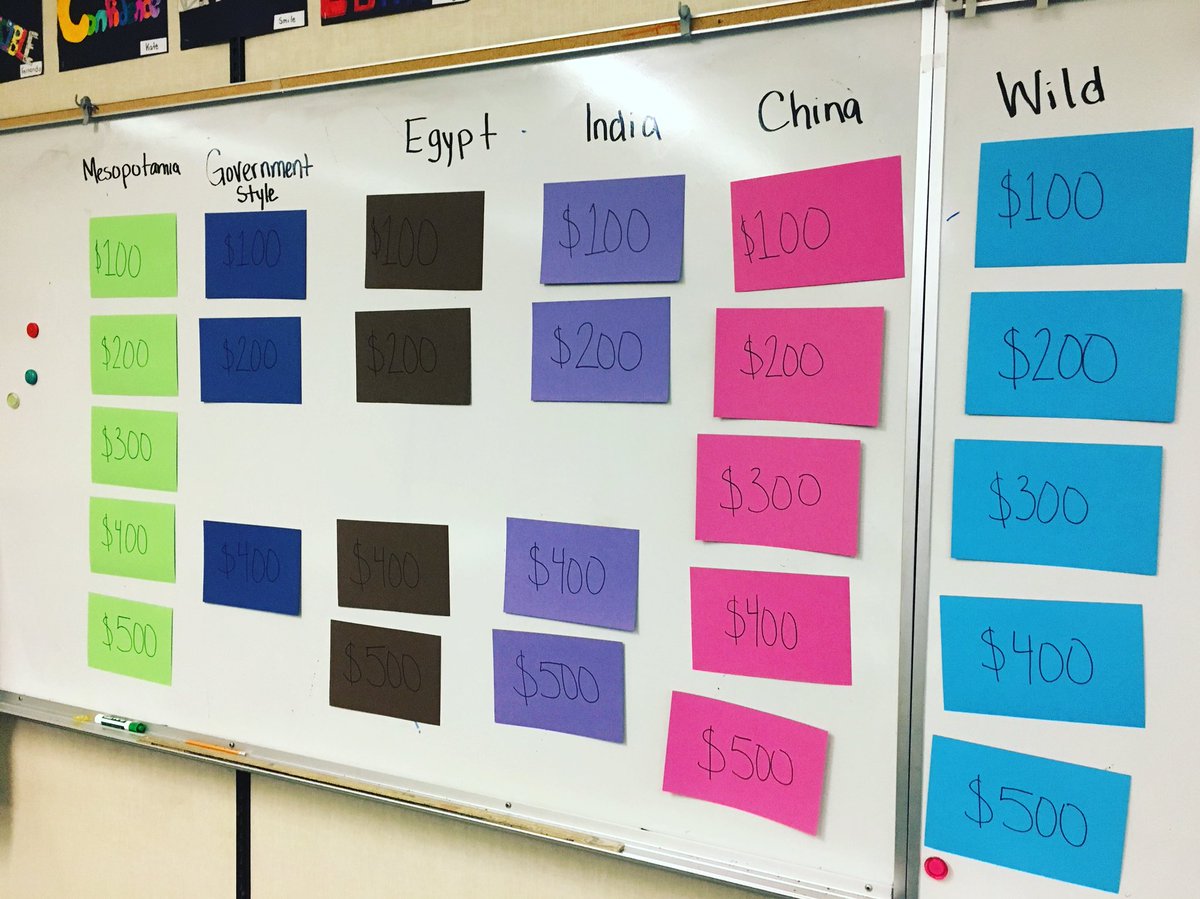 Confidence
Kate
Smile
Fernando
Mesopotamia
Government
Style
Egypt
India
China
Wild
$100
$200
$300
$400
$500
$100
$200
$400
$100
$200
$400
$500
$100
$200
$400
$500
$100
$200
$300
$400
$500
$100
$200
$300
$400
$500